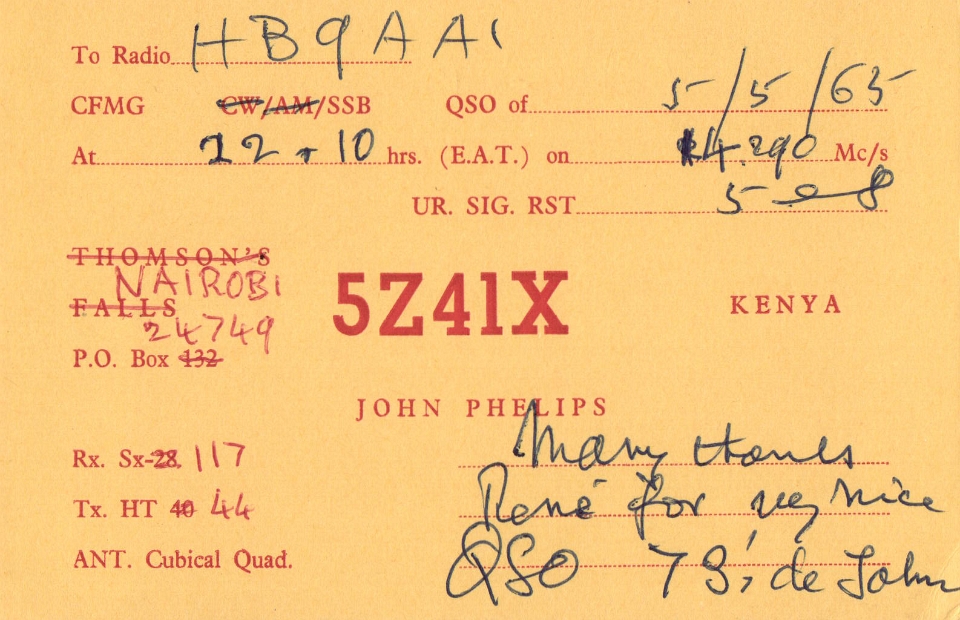 To Radio HB9AAI
CFMG CW/AM/SSB QSO of 5/5/65
At 12.10 hrs. (E.A.T.) on 14.290 Mc/s
UR. SIG. RST 5-8
THOMSON'S
NAIROBI
FALLS
24749
P.O. Box 132
5Z4IX
KENYA
JOHN PHELIPS
Rx. Sx-28. 117
Tx. HT 40 44
ANT. Cubical Quad.
Many thanks
René for very nice
QSO 73, de John